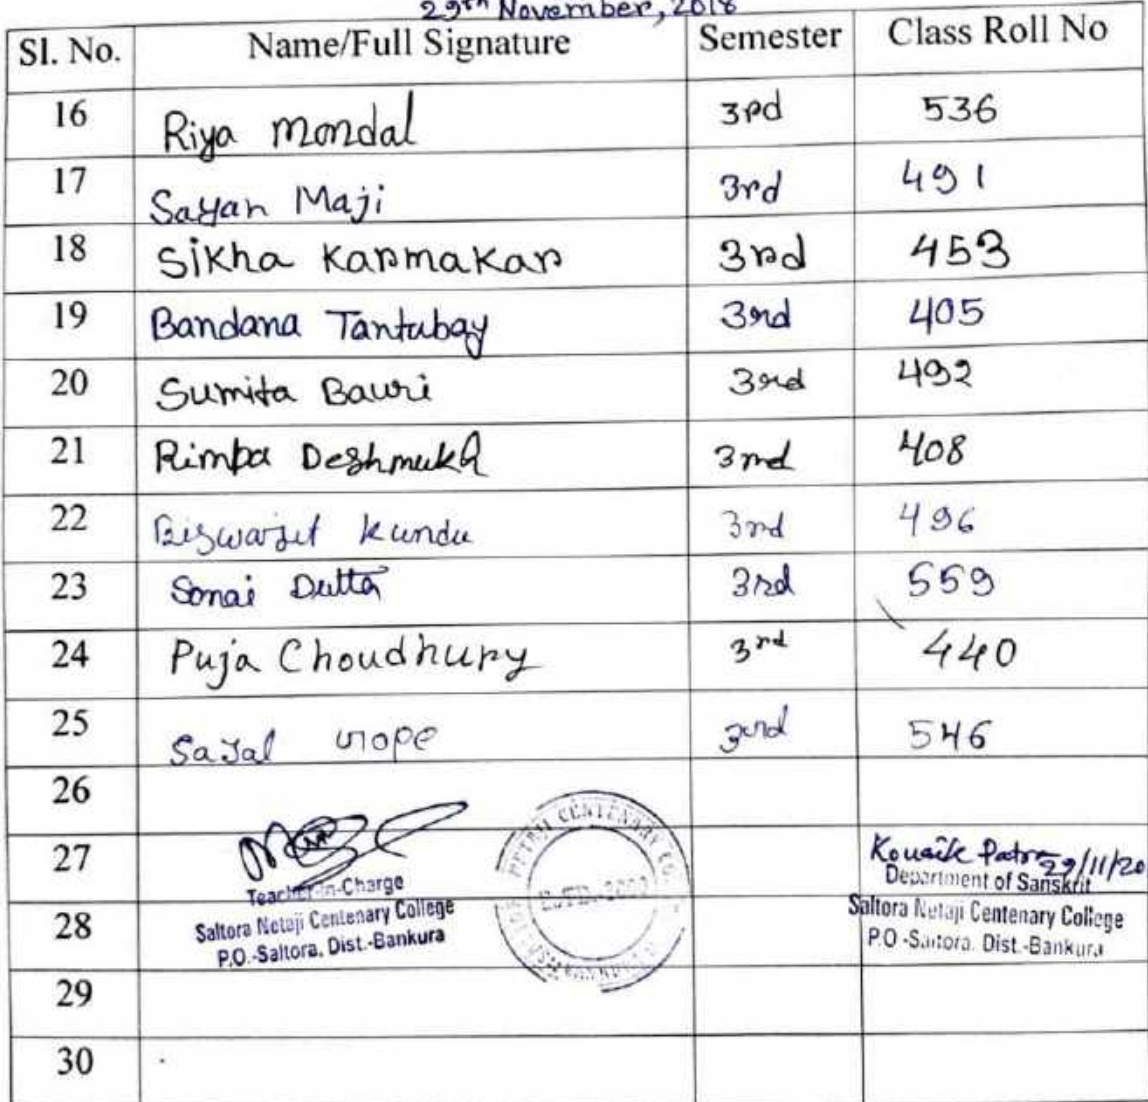 29th November, 2018
Sl. No. Name/Full Signature Semester Class Roll No
16 Riya Mondal 3rd 536
17 Sayan Maji 3rd 491
18 Sikha Karmakar 3rd 453
19 Bandana Tantubay 3rd 405
20 Sumita Bauri 3rd 492
21 Rimpa Deshmukh 3rd 408
22 Biswajit Kundu 3rd 496
23 Sonai Dutta 3rd 559
24 Puja Choudhury 3rd 440
25 Sajal Gope 3rd 546
26
27 Kousik Patra 29/11/20
Teacher-in-Charge Department of Sanskrit
28 Saltora Netaji Centenary College Saltora Netaji Centenary College
P.O.-Saltora, Dist.-Bankura P.O-Saltora. Dist.-Bankura
NETAJI CENTENARY
29
30